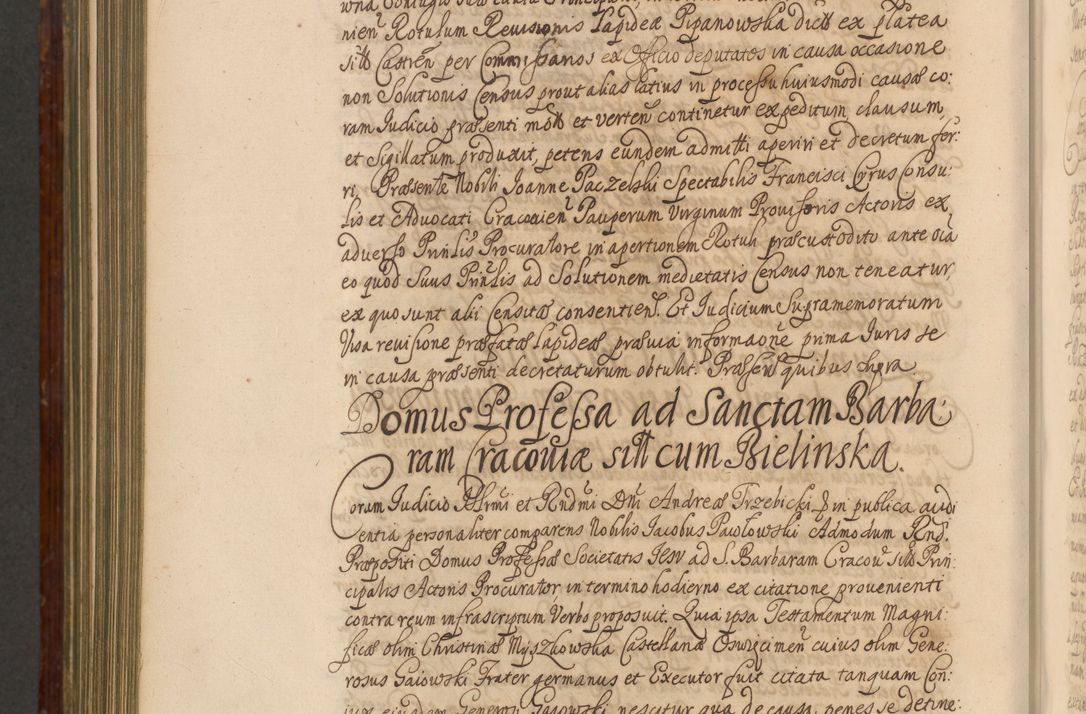 nień Rotulum Revisionis Lapideæ Pipanowska dictæ ex platea
sitæ Castreń per Commissarios ex Officio deputatos in causa occasione
non Solutionis Census prout alias latius in processu huiusmodi causæ co:
ram Iudicio præsenti mõtæ et verteń continetur expeditum, clausum,
et Sigillatum produxit, petens eundem admitti aperiri et decretum fer:
ri. Præsente Nobili Ioanne Paczelski Spectabilis Francisci Cyrus Consu:
lis et Advocati Cracovień Pauperum Virginum Provisoris Actoris ex
adverso Prinlis Procuratore in apertionem Rotuli præcustodito ante oia
eo quod Suus Prinlis ad Solutionem medietatis Census non teneatur,
ex quo sunt alii Censitæ consentień. Et Iudicium Supramemoratum
Visa revisione præfatæ Lapideæ prævia informaoñe prima Iuris se
in causa præsenti decretaturum obtulit. Præseń quibus supra.
Domus Professa ad Sanctam Barba:
ram Cracoviæ sitæ cum Bielinska.
Coram Iudicio Illrmi et Rndmi Dni Andreæ Trzebicki in publica audi
entia personaliter comparens Nobilis Iacobus Pawłowski Admodum Rnd:
Præpositi Domus Professæ Societatis Iesv ad S. Barbaram Cracov sitæ Prin:
cipalis Actoris Procurator in termino hodierno ex citatione provenienti
contra reum infrascriptum Verbo proposuit. Quia ipsa Testamentum Magni:
ficæ olim Christinæ Myszkowska Castellanæ Oswięcimeń cuius olim Gene:
rosus Gaiowski Frater germanus et Executor fuit citata tanquam Con:
iux eiusdem Generosi Gaiowski nescitur qua de causa penes se detine: